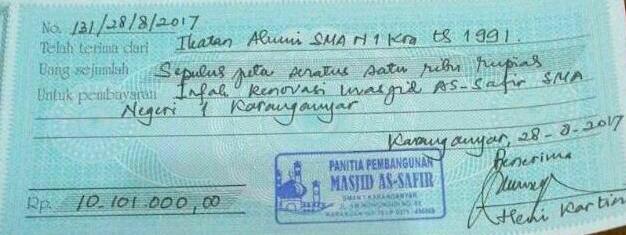 No. 131/28/8/2017
Telah terima dari Ikatan Alumni SMA N 1 Kra ts 1991.
Uang sejumlah Sepuluh juta seratus satu ribu rupiah
Untuk pembayaran Infak Renovasi Masjid AS-Safir SMA
Negeri 1 Karanganyar
Karanganyar, 28-8-2017
Penerima
PANITIA PEMBANGUNAN
MASJID AS-SAFIR
SMA N 1 KARANGANYAR
Rp. 10.101.000,00
Heni Kartin